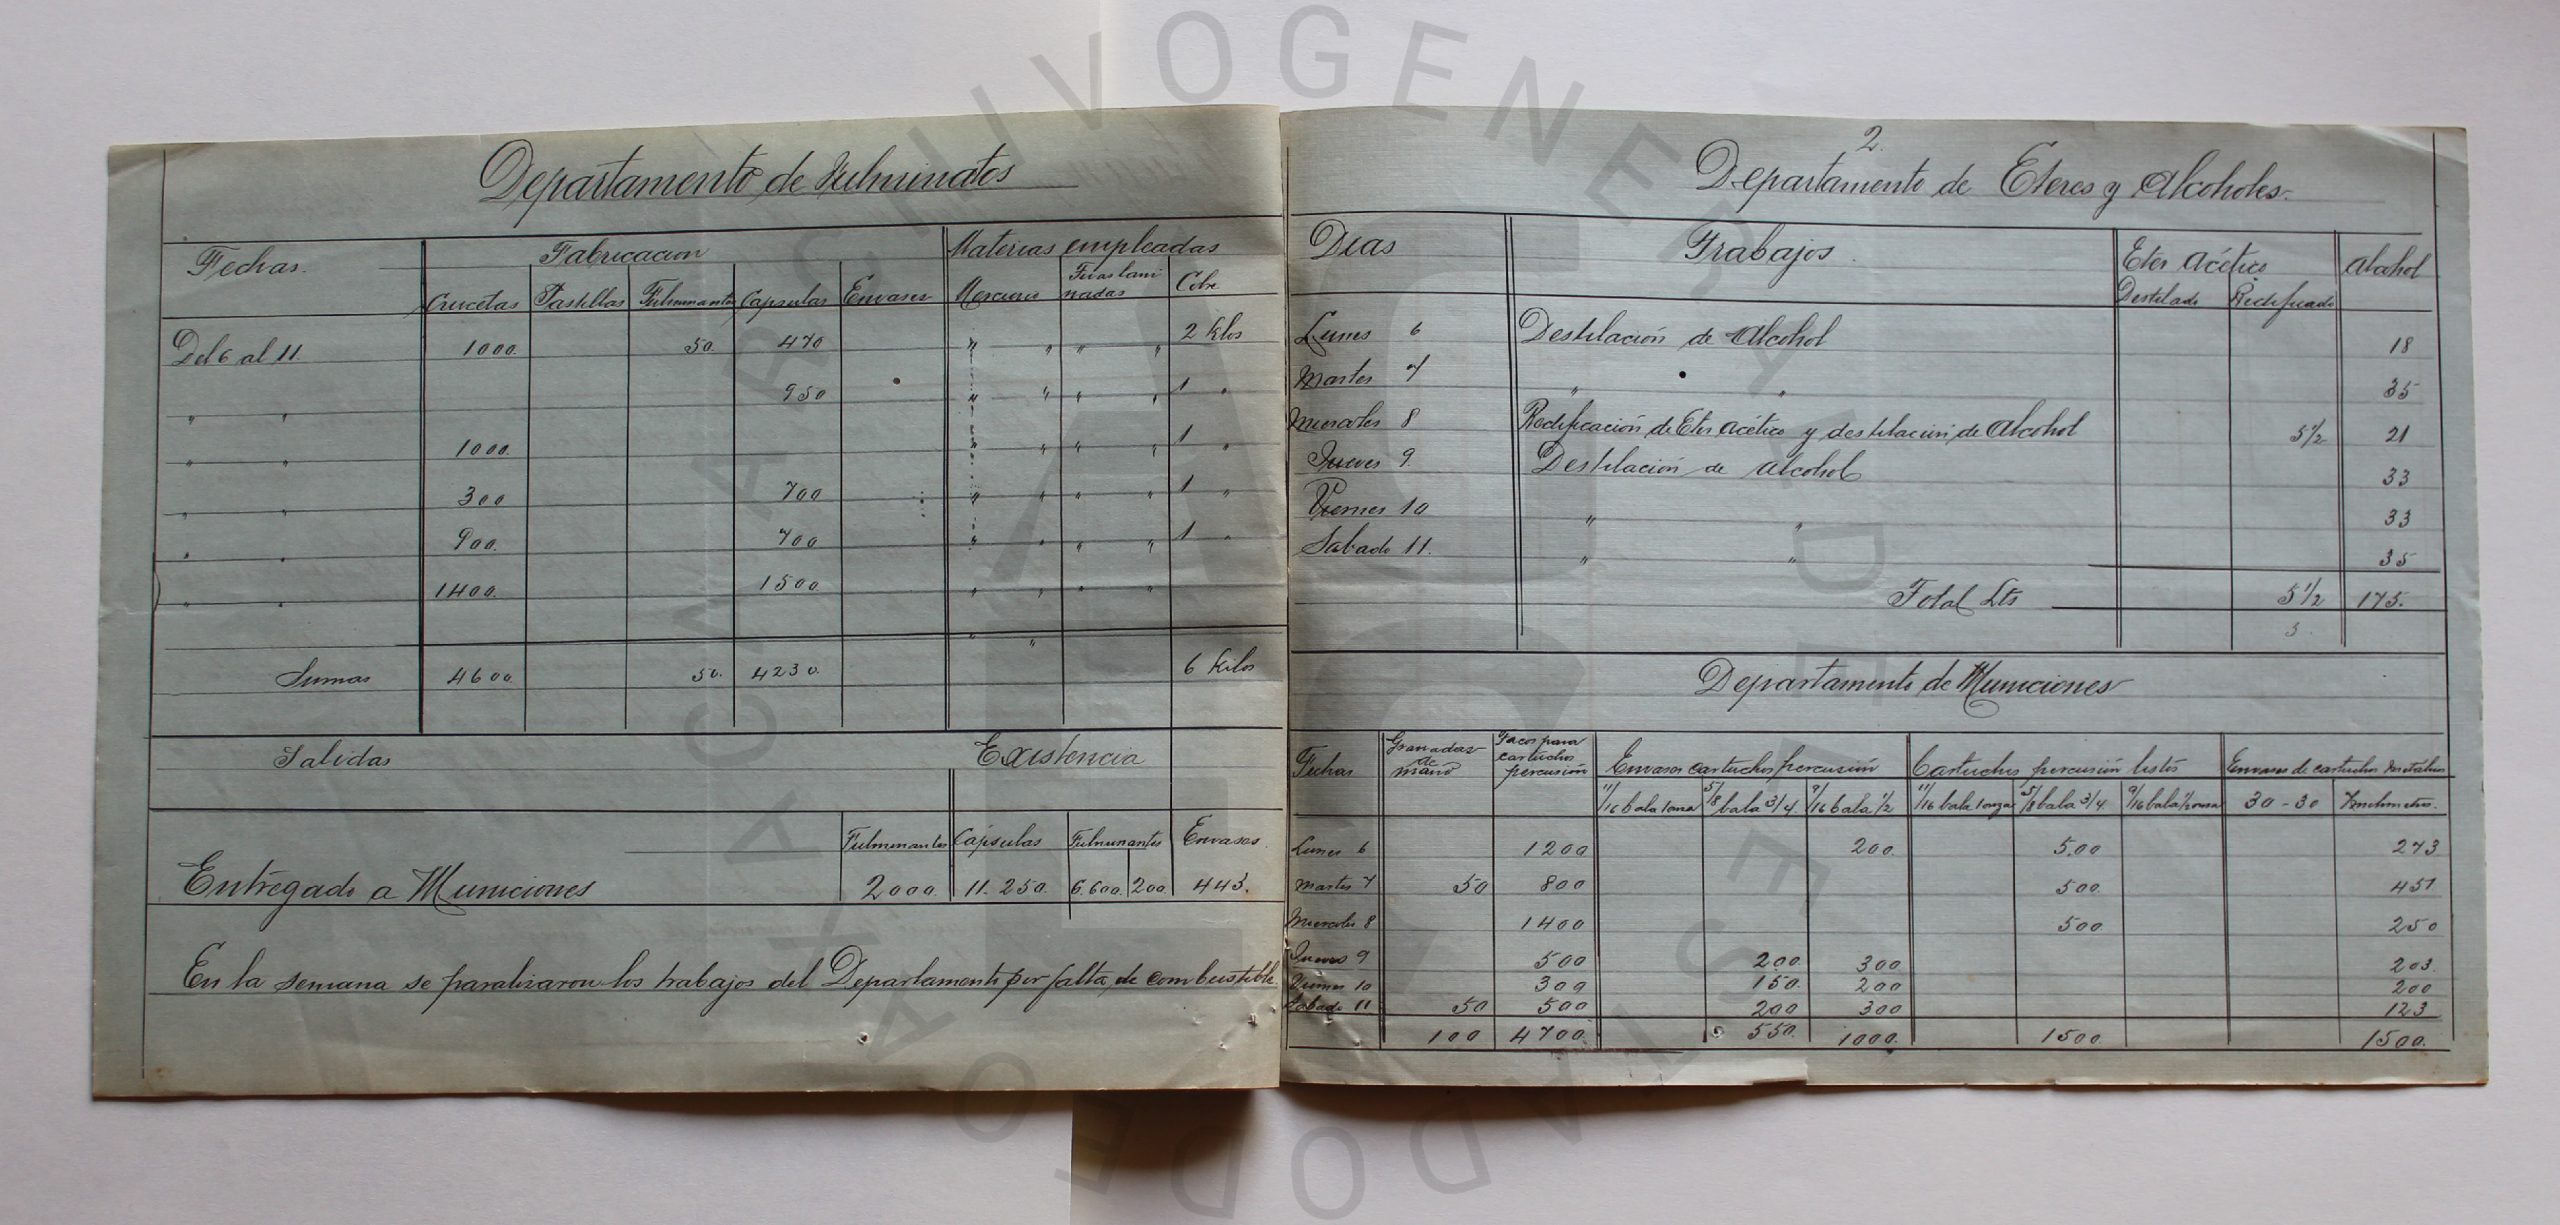 Departamento de Fulminatos
Fechas. Fabricacion Materias empleadas
Crucetas Pastillas Fulminantes Capsulas Envases Mercurio Cobre
Del 6 al 11. 1000. 50. 470 " " " " 2 Klos
" " 950 " " " " 1 "
" " 1000. " " " " 1 "
" " 300 700 " " " " 1 "
" " 900. 700 " " " " 1 "
" " 1400. 1500. " " " "
" "
Sumas 4600. 50. 4230. 6 Kilos
Salidas Existencia
Fulminantes Cápsulas Fulminantes Envases.
Entregado a Municiones 2000. 11.250. 6.600. 200. 443.
En la semana se paralizaron los trabajos del Departamento por falta de combustible.
2.
Departamento de Eteres y Alcoholes.
Dias Trabajos. Eter Acético Alcohol
Destilado Rectificado
Lunes 6 Destilación de Alcohol 18
Martes 7 " " 35
Miercoles 8 Rectificación de Eter Acético y destilacion de Alcohol 5 1/2 21
Jueves 9. Destilación de alcohol 33
Viernes 10 " " 33
Sabado 11. " " 35
Total Lts 5 1/2 175.
3.
Departamento de Municiones
Fechas Granadas de mano Tacos para cartuchos percusión Envases cartuchos percusión Cartuchos percusión listos Envases de cartuchos metálicos
11/16 bala 1 onza 5/8 bala 3/4. 9/16 bala 1/2 11/16 bala 1 onza 5/8 bala 3/4. 9/16 bala 1/2 onza 30-30
Lunes 6 1200 200. 500 273.
Martes 7 50 800 500. 451
Miercoles 8 1400 500. 250
Jueves 9 500 200. 300 203.
Viernes 10 300 150. 200 200
Sabado 11 50 500 200 300 123
100 4700. 550. 1000. 1500. 1500.
ARCHIVO GENERAL DEL ESTADO DE OAXACA